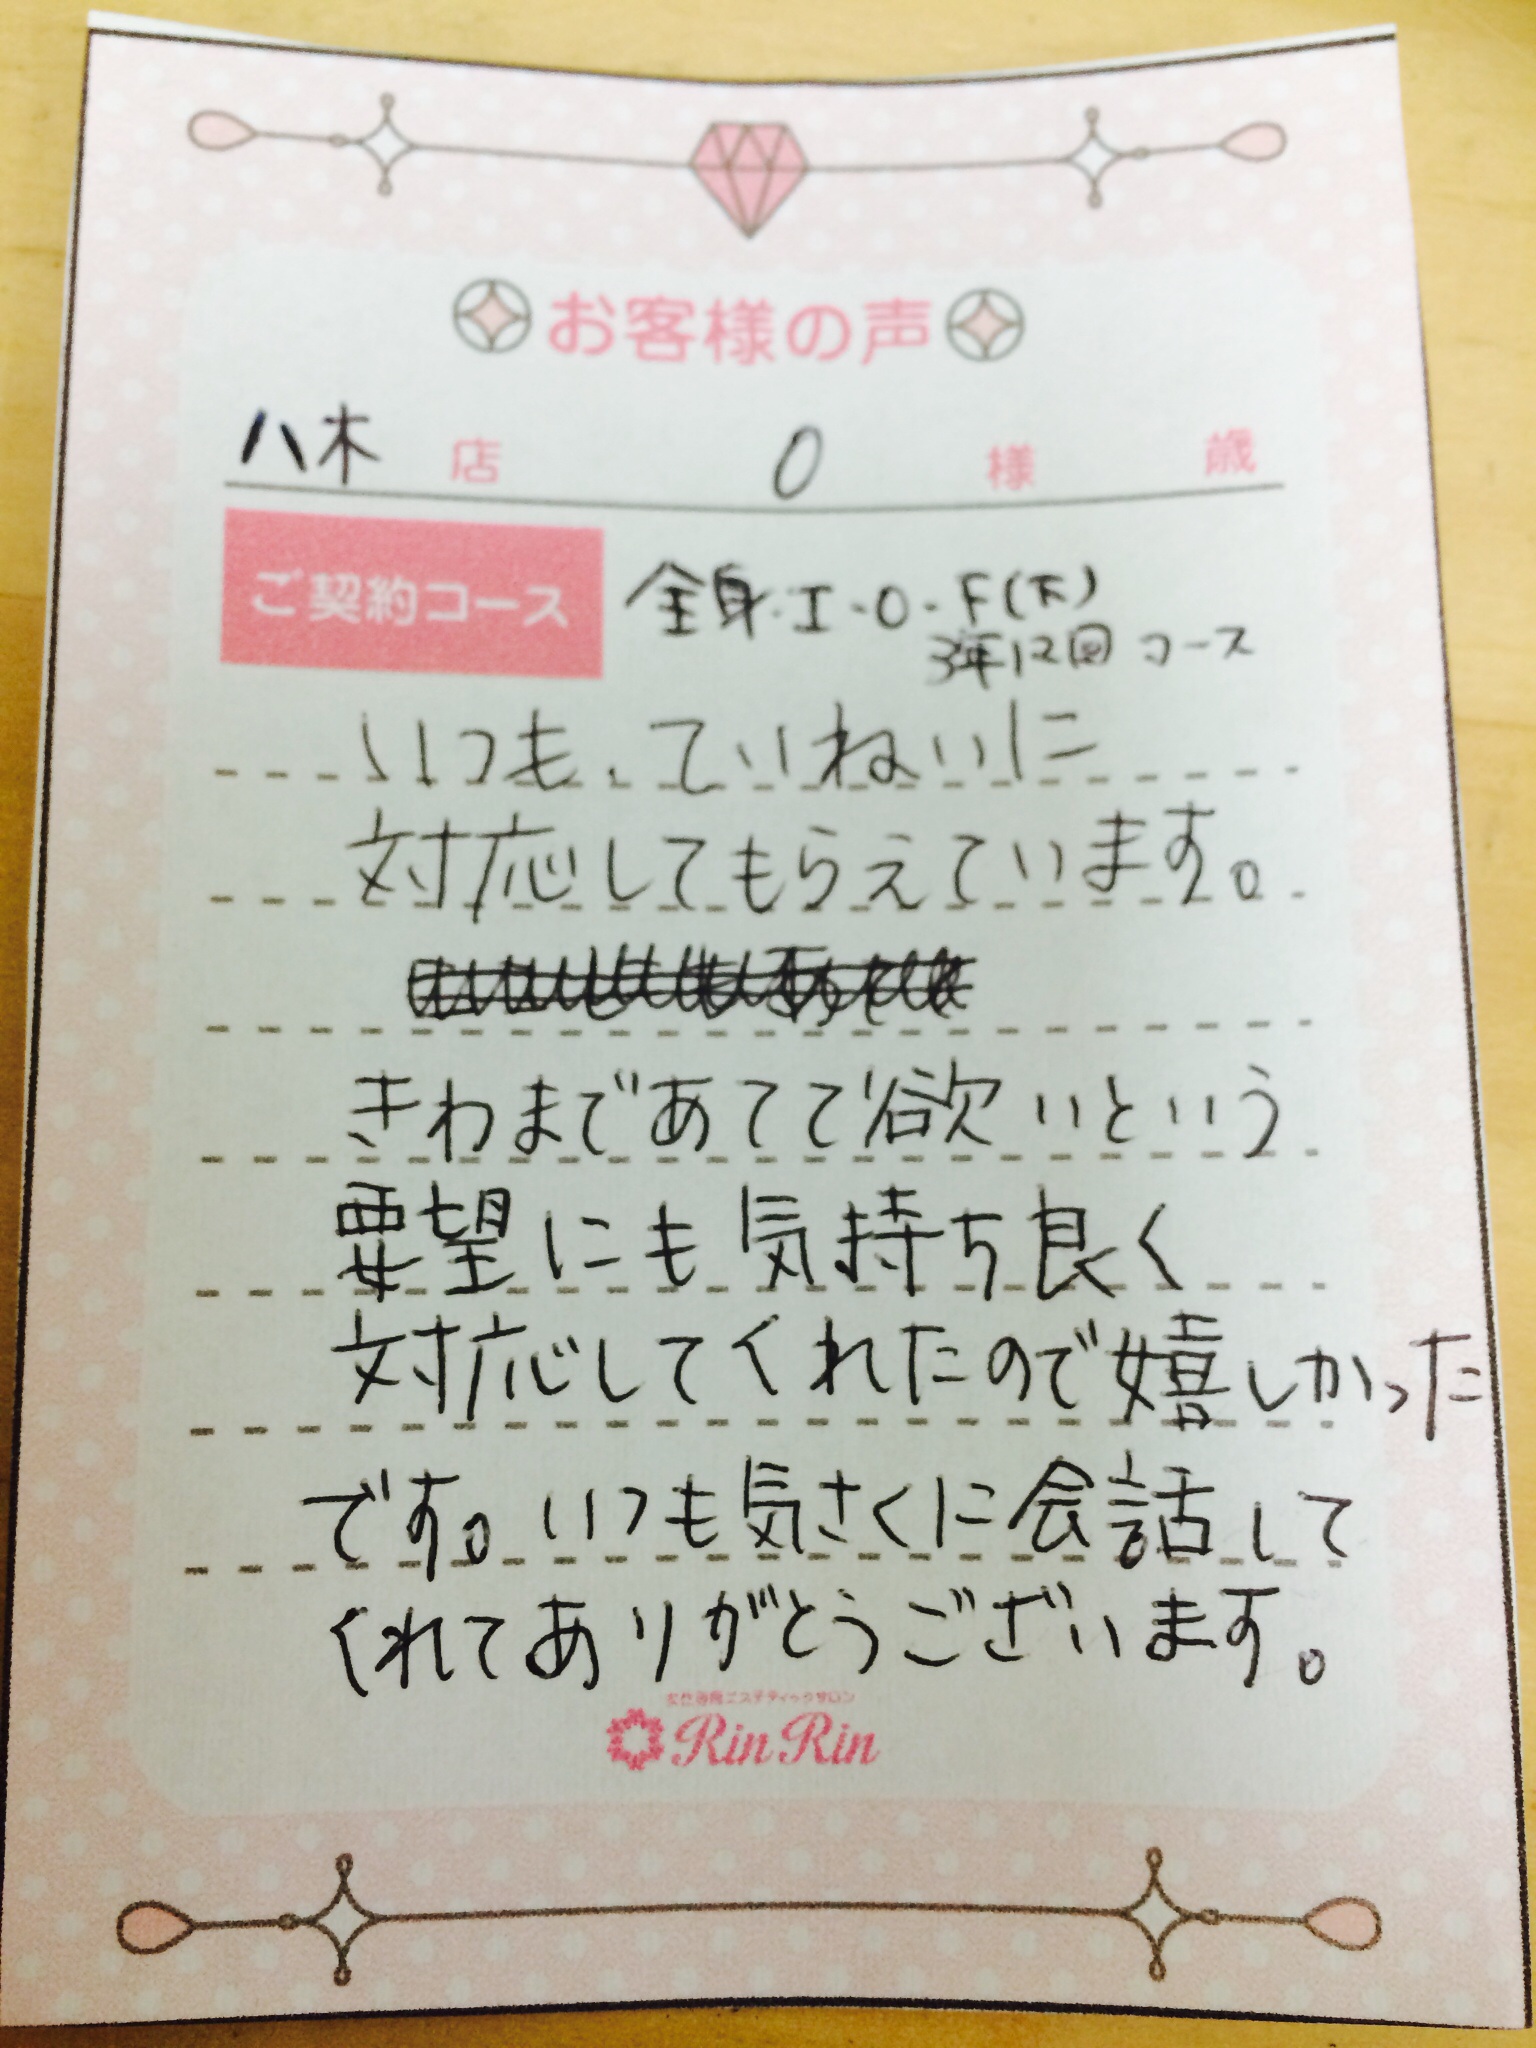 お客様の声
八木 店 O 様 歳
ご契約コース 全身・I・O・F(下)
3年12回コース
いつも、ていねいに
対応してもらえています。
きわまであてて欲いという
要望にも気持ち良く
対応してくれたので嬉しかった
です。いつも気さくに会話して
くれてありがとうございます。
女性専用エステティックサロン
RinRin